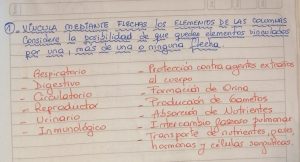 ① - VINCULA MEDIANTE FLECHAS LOS ELEMENTOS DE LAS COLUMNAS
Considere la posibilidad de que queden elementos vinculados
por una, más de una o ninguna flecha.
- Respiratorio
- Digestivo
- Circulatorio
- Reproductor
- Urinario
- Inmunológico
- Protección contra agentes extraños
al cuerpo
- Formación de Orina
- Producción de Gametos
- Absorción de Nutrientes
- Intercambio gaseoso pulmonar
- Transporte de nutrientes, gases,
hormonas y células sanguíneas.